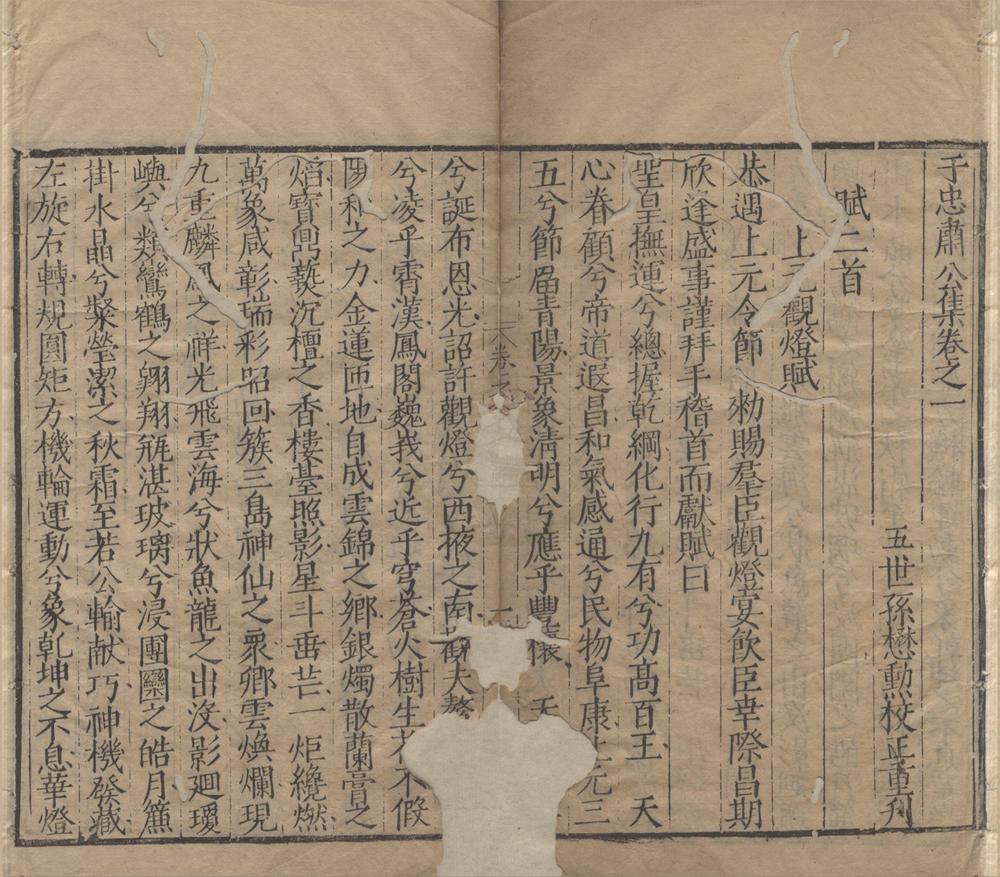 于忠肅公集卷之一
五世孫懋勲校正重刋
賦二首
上元觀燈賦
恭遇上元令節勑賜羣臣觀燈宴飲臣幸際昌期
欣逢盛事謹拜手稽首而獻賦曰
聖皇撫運兮總握乾綱化行九有兮功髙百王天
心眷顧兮帝道遐昌和氣感通兮民物阜康上元三
五兮節屆青陽景象淸明兮應乎豐穰天
卷之
一
兮誕布恩光詔許觀燈兮西掖之南觀夫鰲
兮凌乎霄漢鳳閣巍峩兮近乎穹蒼火樹生花不假
陽和之力金蓮匝地自成雲錦之鄉銀燭散蘭膏之
焰寶鼎爇沉檀之香樓臺照影星斗垂芒一炬纔燃
萬象咸彰瑞彩昭回簇三島神仙之衆卿雲煥爛現
九重麟鳳之祥光飛雲海兮狀魚龍之出沒影廻璦
嶼兮類鸞鶴之翺翔瓶湛玻璃兮浸團圞之皓月簾
掛水晶兮粲瑩潔之秋霜至若公輸献巧神機發藏
左旋右轉規圓矩方機輪運動兮象乾坤之不息華燈